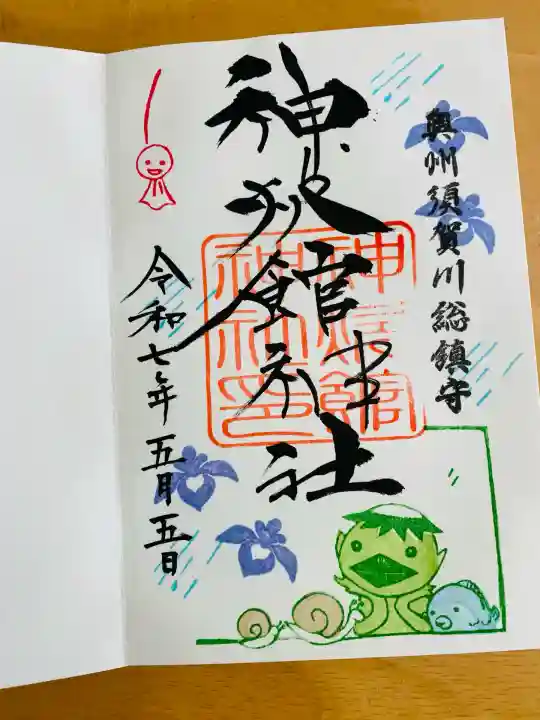 奥州須賀川総鎮守
神炊館神社
神炊館
神社印
令和七年五月五日